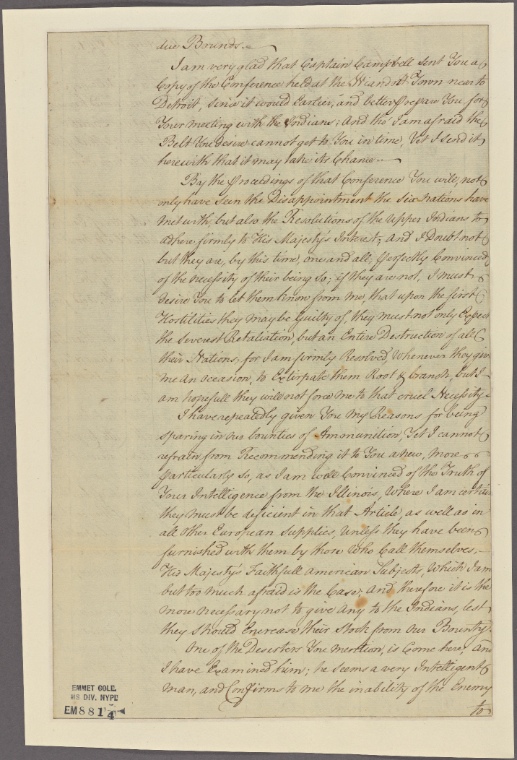 due Bounds.~
I am very glad that Captain Campbell Sent You a
Copy of the Conference held at the Wiandot Town near to
Detroit, Since it would Earlier, and better prepare You, for
Your meeting with the Indians; And tho' I am afraid the
Belt You Desire cannot get to You in time, Yet I send it
herewith that it may take its Chance.~
By the Proceedings of that Conference You will, not
only have Seen the Disappointment the Six Nations have
met with, but also the Resolutions of the Upper Indians to
adhere firmly to His Majesty's Interest; and I Doubt not
but they are, by this time, one and all, perfectly Convinced
of the necessity of their being so; if they are not, I must
desire You to let them know from me, that upon the first
Hostilities they may be Guilty of, they must not only Expect
the Severest Retaliation, but an Entire Destruction of all
their Nations, for I am firmly Resolved, Whenever they give
me an occasion, to Extirpate them Root & branch; but I
am hopefull they will not force me to that cruel Necessity.
I have repeatedly given You my Reasons for being
sparing in our bounties of Ammunition, Yet I cannot
refrain from Recommending it to You anew, more
particularly so, as I am well Convinced of the Truth of
Your Intelligence from the Illinois, Where I am certain
they must be deficient in that Article, as well as in
all other European Supplies, Unless they have been
furnished with them by those who Call themselves,
His Majesty's Faithfull American Subjects, Which I am
but too much afraid is the Case, and therefore it is the
more necessary not to give Any to the Indians, lest
they should Encrease their Stock from Our Bounty.
One of the Deserters You mention, is Come here, And
I have Examined him; he Seems a very Intelligent
Man, and Confirms to me the inability of the Enemy
to
EMMET COLL.
MS DIV. NYPL
EM8814